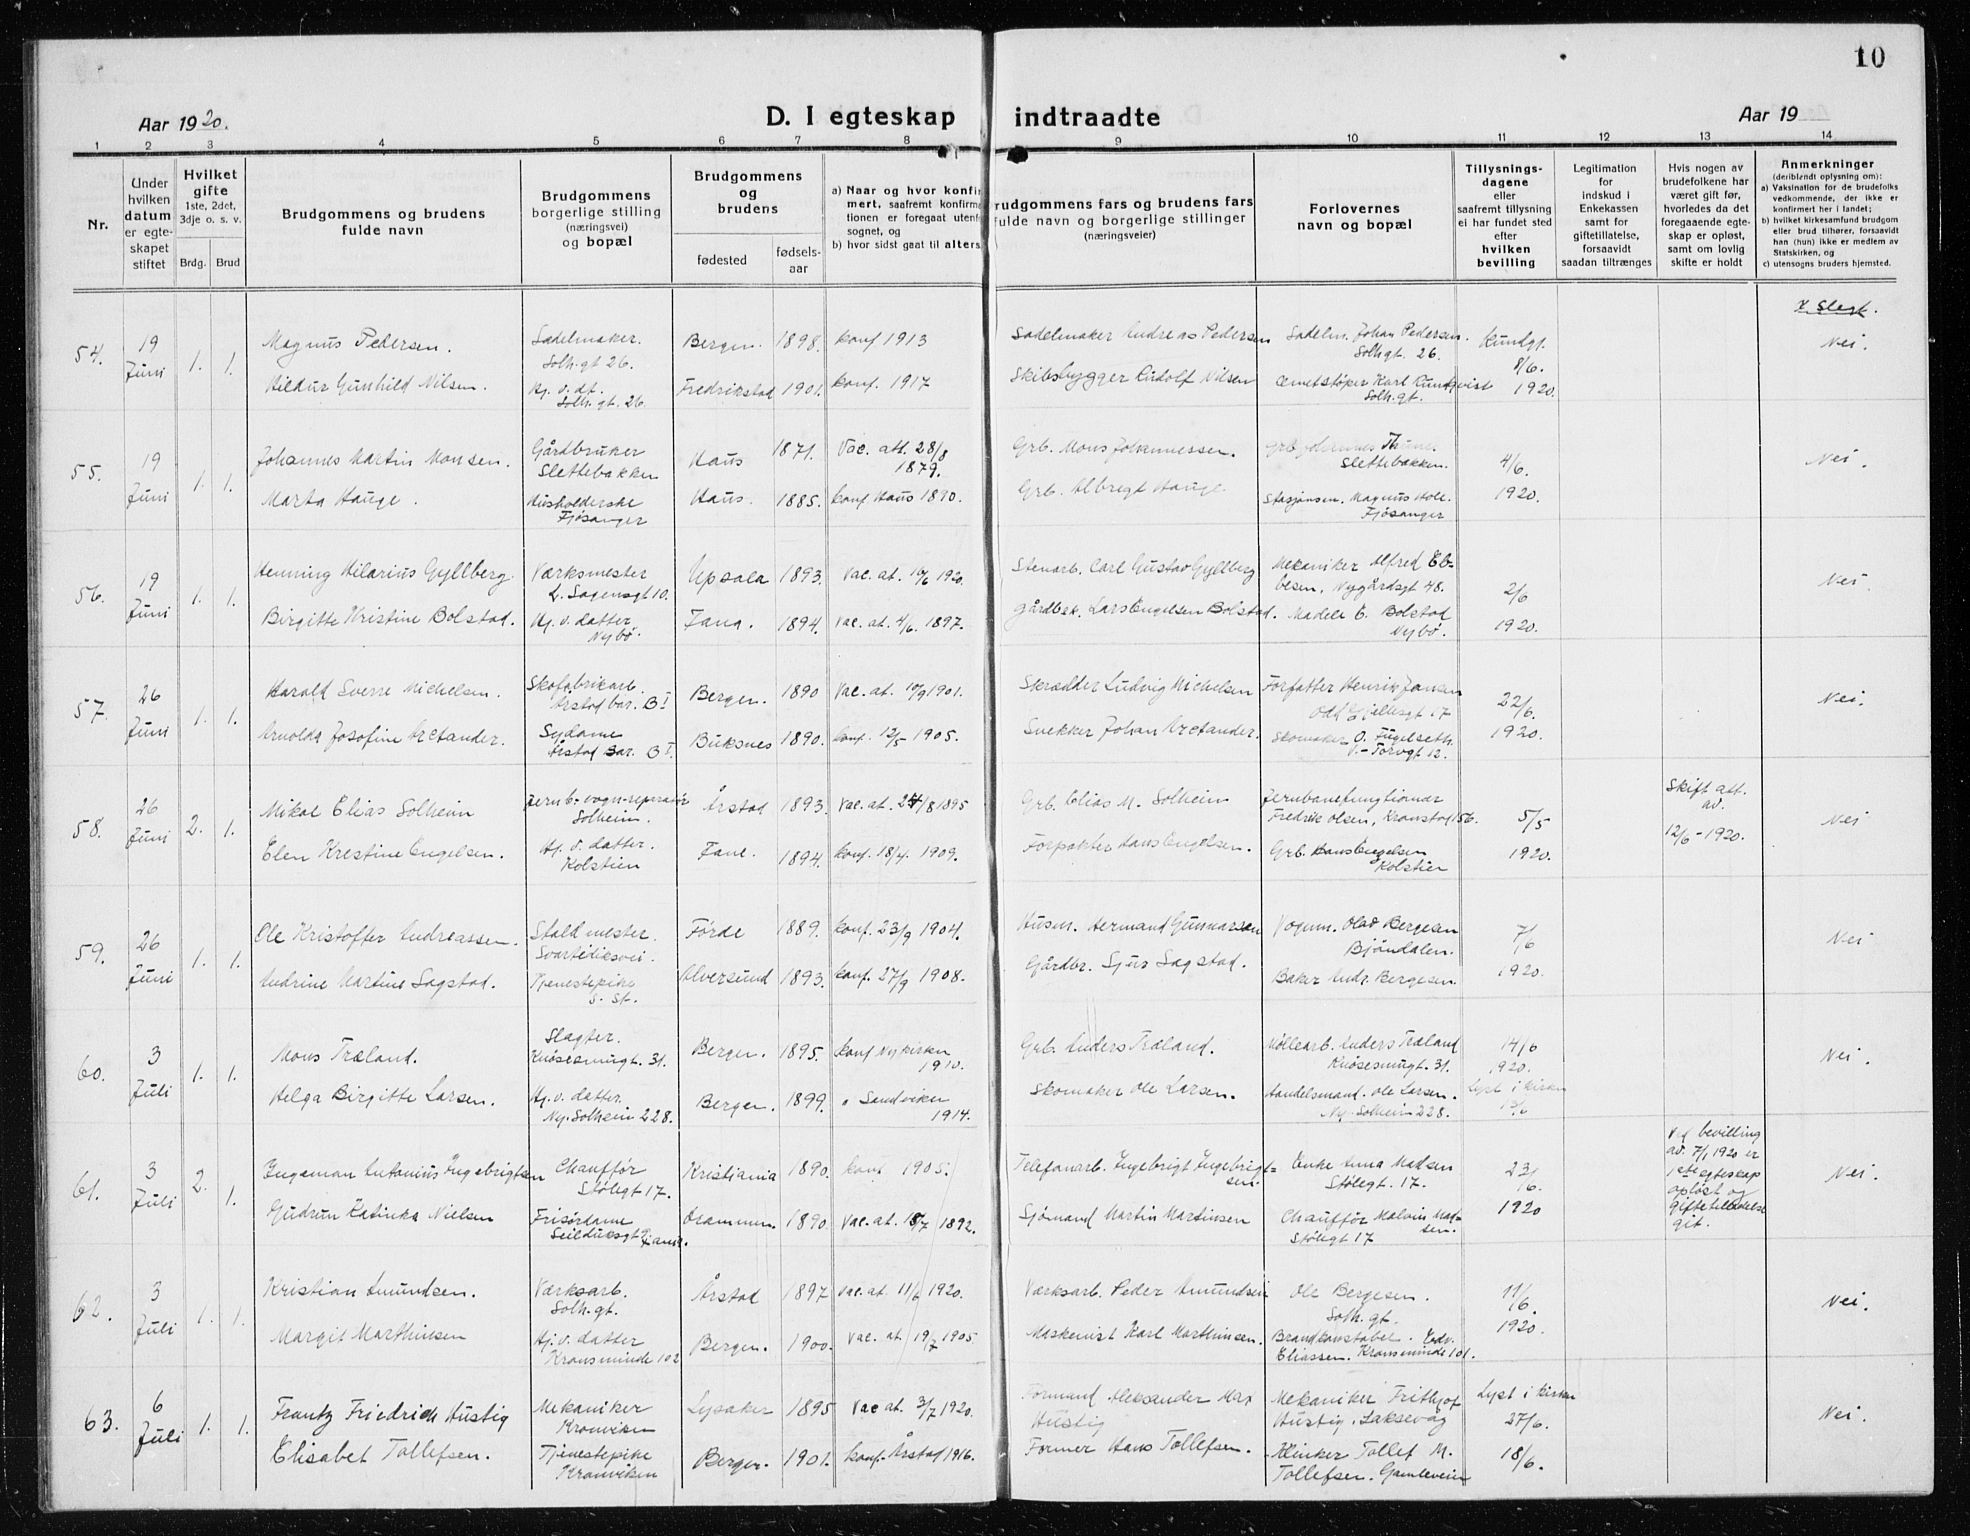 10
Aar 1920.
D. I egteskap indtraadte
Aar 19
1 2 3 4 5 6 7 8 9 10 11 12 13 14
Nr.
Under hvilken datum er egteskapet stiftet
Hvilket gifte
1ste, 2det, 3dje o. s. v.
Brdg. Brud
Brudgommens og brudens fulde navn
Brudgommens borgerlige stilling (næringsvei) og bopæl
Brudgommens og brudens
fødested
fødsels-aar
a) Naar og hvor konfir
mert, saafremt konfirma
tionen er foregaat utenfo
sognet, og
b) hvor sidst gaat til alters
rudgommens fars og brudens fars
fulde navn og borgerlige stillinger
(næringsveier)
Forlovernes navn og bopæl
Tillysnings-dagene
eller
saafremt tillysning
ei har fundet sted
efter
hvilken
bevilling
Legitimation
for
indskud i
Enkekassen
samt for
giftetillatelse,
forsaavidt
saadan tiltrænges
Hvis nogen av
brudefolkene har
været gift før,
hvorledes da det
foregaaende egte-
skap er opløst,
samt om lovlig
skifte er holdt
Anmerkninger
(deriblandt oplysning om):
a) Vaksination for de brudefolks
vedkommende, der ikke er
konfirmert her i landet;
b) hvilket kirkesamfund brudgom
eller brud tilhører, forsaavidt
han (hun) ikke er medlem av
Statskirken, og
c) utensogns bruders hjemsted.
Slegt.
54. 19 Juni 1. 1.
Magnus Pedersen. Sadelmaker. Solh.gt 26. Bergen. 1898. konf 1913 Sadelmaker Andreas Pedersen Sadelm. Johan Pedersen. Solhgt. 26. Kundgj. 8/6. 1920. Nei.
Hildur Gunhild Nilsen. Hj. v. dt. Solh. gt. 26. Fredrikstad 1901. konf. 1917 Skibsbygger Rudolf Nilsen Cemetstøper Karl Rundqvist Solh.gt.
55. 19 Juni 1. 1.
Johannes Martin Monsen. Gårdbruker Slettebakken Haus 1871. Vac. att. 28/8 1879. Grb. Mons Johannessen. Grb Johannes Thunes Slettebakken. 4/6. 1920. Nei.
Marta Hauge. Husholderske Fjøsanger Haus. 1885. konf Haus 1890. Grb. Albregt Hauge. Magnus Hole. Fjøsanger
56. 19 Juni 1. 1.
Henning Hilarius Gyllberg. Værksmester Upsala 1893. Vac. at. 16/6 1920. Stenarb. Carl Gustav Gyllberg Mekaniker Alfred Eb-
besen, Nygårdsgt 48. 2/6 1920. Nei
Birgitte Kristine Bolstad. Hj. v. datter. Nybø. Fana. 1894. Vac. at. 4/6. 1897. Gårdbrk. Lars Engelsen Bolstad. Madele E. Bolstad Nybø.
57. 26 Juni 1. 1.
Harald Sverre Michelsen. Skofabrikarb. Årstad bar. B I Bergen. 1890 Vac. at. 10/9 1901. Skrædder Ludvig Michelsen Forfatter Henrik Jansen Odd Gjellesgt 17 22/6. 1920. Nei.
Arnolda Josofine Aretander. Sydame Årstad Bar. B I. Buksnes 1890. konf. 12/5 1905. Snekker Johan Aretander. Skomaker O. Fugelseth. V.-Torvgt 12.
58. 26 Juni 2. 1.
Mikal Elias Solheim Jernb.-vogn-reparatør Solheim. Årstad 1893. Vac. at. 24/8 1895 Grb. Elias M. Solheim Jernbanefunqtionær Fredrik Olsen, Kronstad 156. 5/5 1920. Skift att. av. 12/6-1920. Nei
Elen Krestine Engelsen. Hj. v. datter. Kolstien Fane. 1894. konf. 18/4. 1909. Forpakter Hans Engelsen. Grb. Hans Engelsen Kolstien
59. 26 Juni 1. 1.
Ole Kristoffer Andreassen. Staldmester. Svartediksvei. Førde 1889. konf. 23/9 1904. Husm. Hermand Gunnarsen Vognm. Olav Bergesen Bjøndalen. 7/6 1920. Nei
Andrine Martine Sagstad. Tjenestepike s. st. Alversund 1893. konf. 27/9 1908. Gårdbr. Sjur Sagstad. Baker Andr. Bergesen.
60. 3 Juli 1. 1.
Mons Træland. Slagter. Knøsesmugt. 31. Bergen. 1895. konf Nykirken 1910. Grb. Anders Træland. Møllearb. Anders Træland Knøsesmugt. 31. 14/6 1920. Nei.
Helga Birgitte Larsen. Hj. v. datter. Ny. Solheim 228. Bergen. 1899. " Sandviken 1914. Skomaker Ole Larsen. Handelsmand. Ole Larsen. Ny-Solheim 228. Lyst i Kirken 13/6
61. 3 Juli 2. 1.
Ingeman Antonius Ingebrigtsen Chauffør Stølegt 17. Kristiania 1890. konf 1905. Telefonarb. Ingebrigt Ingebrigt-
sen. Enke Anna Madsen Stølegt. 17. 23/6. 1920 Ved bevilling av. 7/1 1920 er 1ste egteskap opløst og giftetilladelse git. Nei.
Gudrun Katinka Nielsen Frisørdame Seilduksgt Drammen. 1890 Vac. at. 18/7 1892. Sjømand Martin Martinsen Chauffør Malvin Mad-
sen. Stølegt 17
62. 3 Juli 1. 1.
Kristian Amundsen. Værksarb. Solh.gt. Årstad 1897 Vac. at. 11/6 1920. Værksarb. Peder Amundsen Ole Bergesen. Solh.gt. 11/6. 1920. Nei.
Margit Marthinsen Hj. v. datter Kronsminde 102 Bergen. 1900. Vac. at. 19/7 1905 Maskenist Karl Marthinsen. Brandkonstabel. Edv. Eliassen. Kronsminde 101.
63. 6 Juli 1. 1.
Frantz Friedrich Hustig Mekaniker Kronviken Lysaker 1895 Vac at. 3/7 1920. Formand Aleksander Max Hustig Mekaniker Frithjof Hustig, Laksevåg Lyst i kirken 27/6. Nei.
Elisabet Tollefsen. Tjenestepike Kronviken Bergen. 1901. konf. Årstad 1916. Former Hans Tollefsen. Klinker Tollef M. Tollefsen. Gamleveien 18/6.